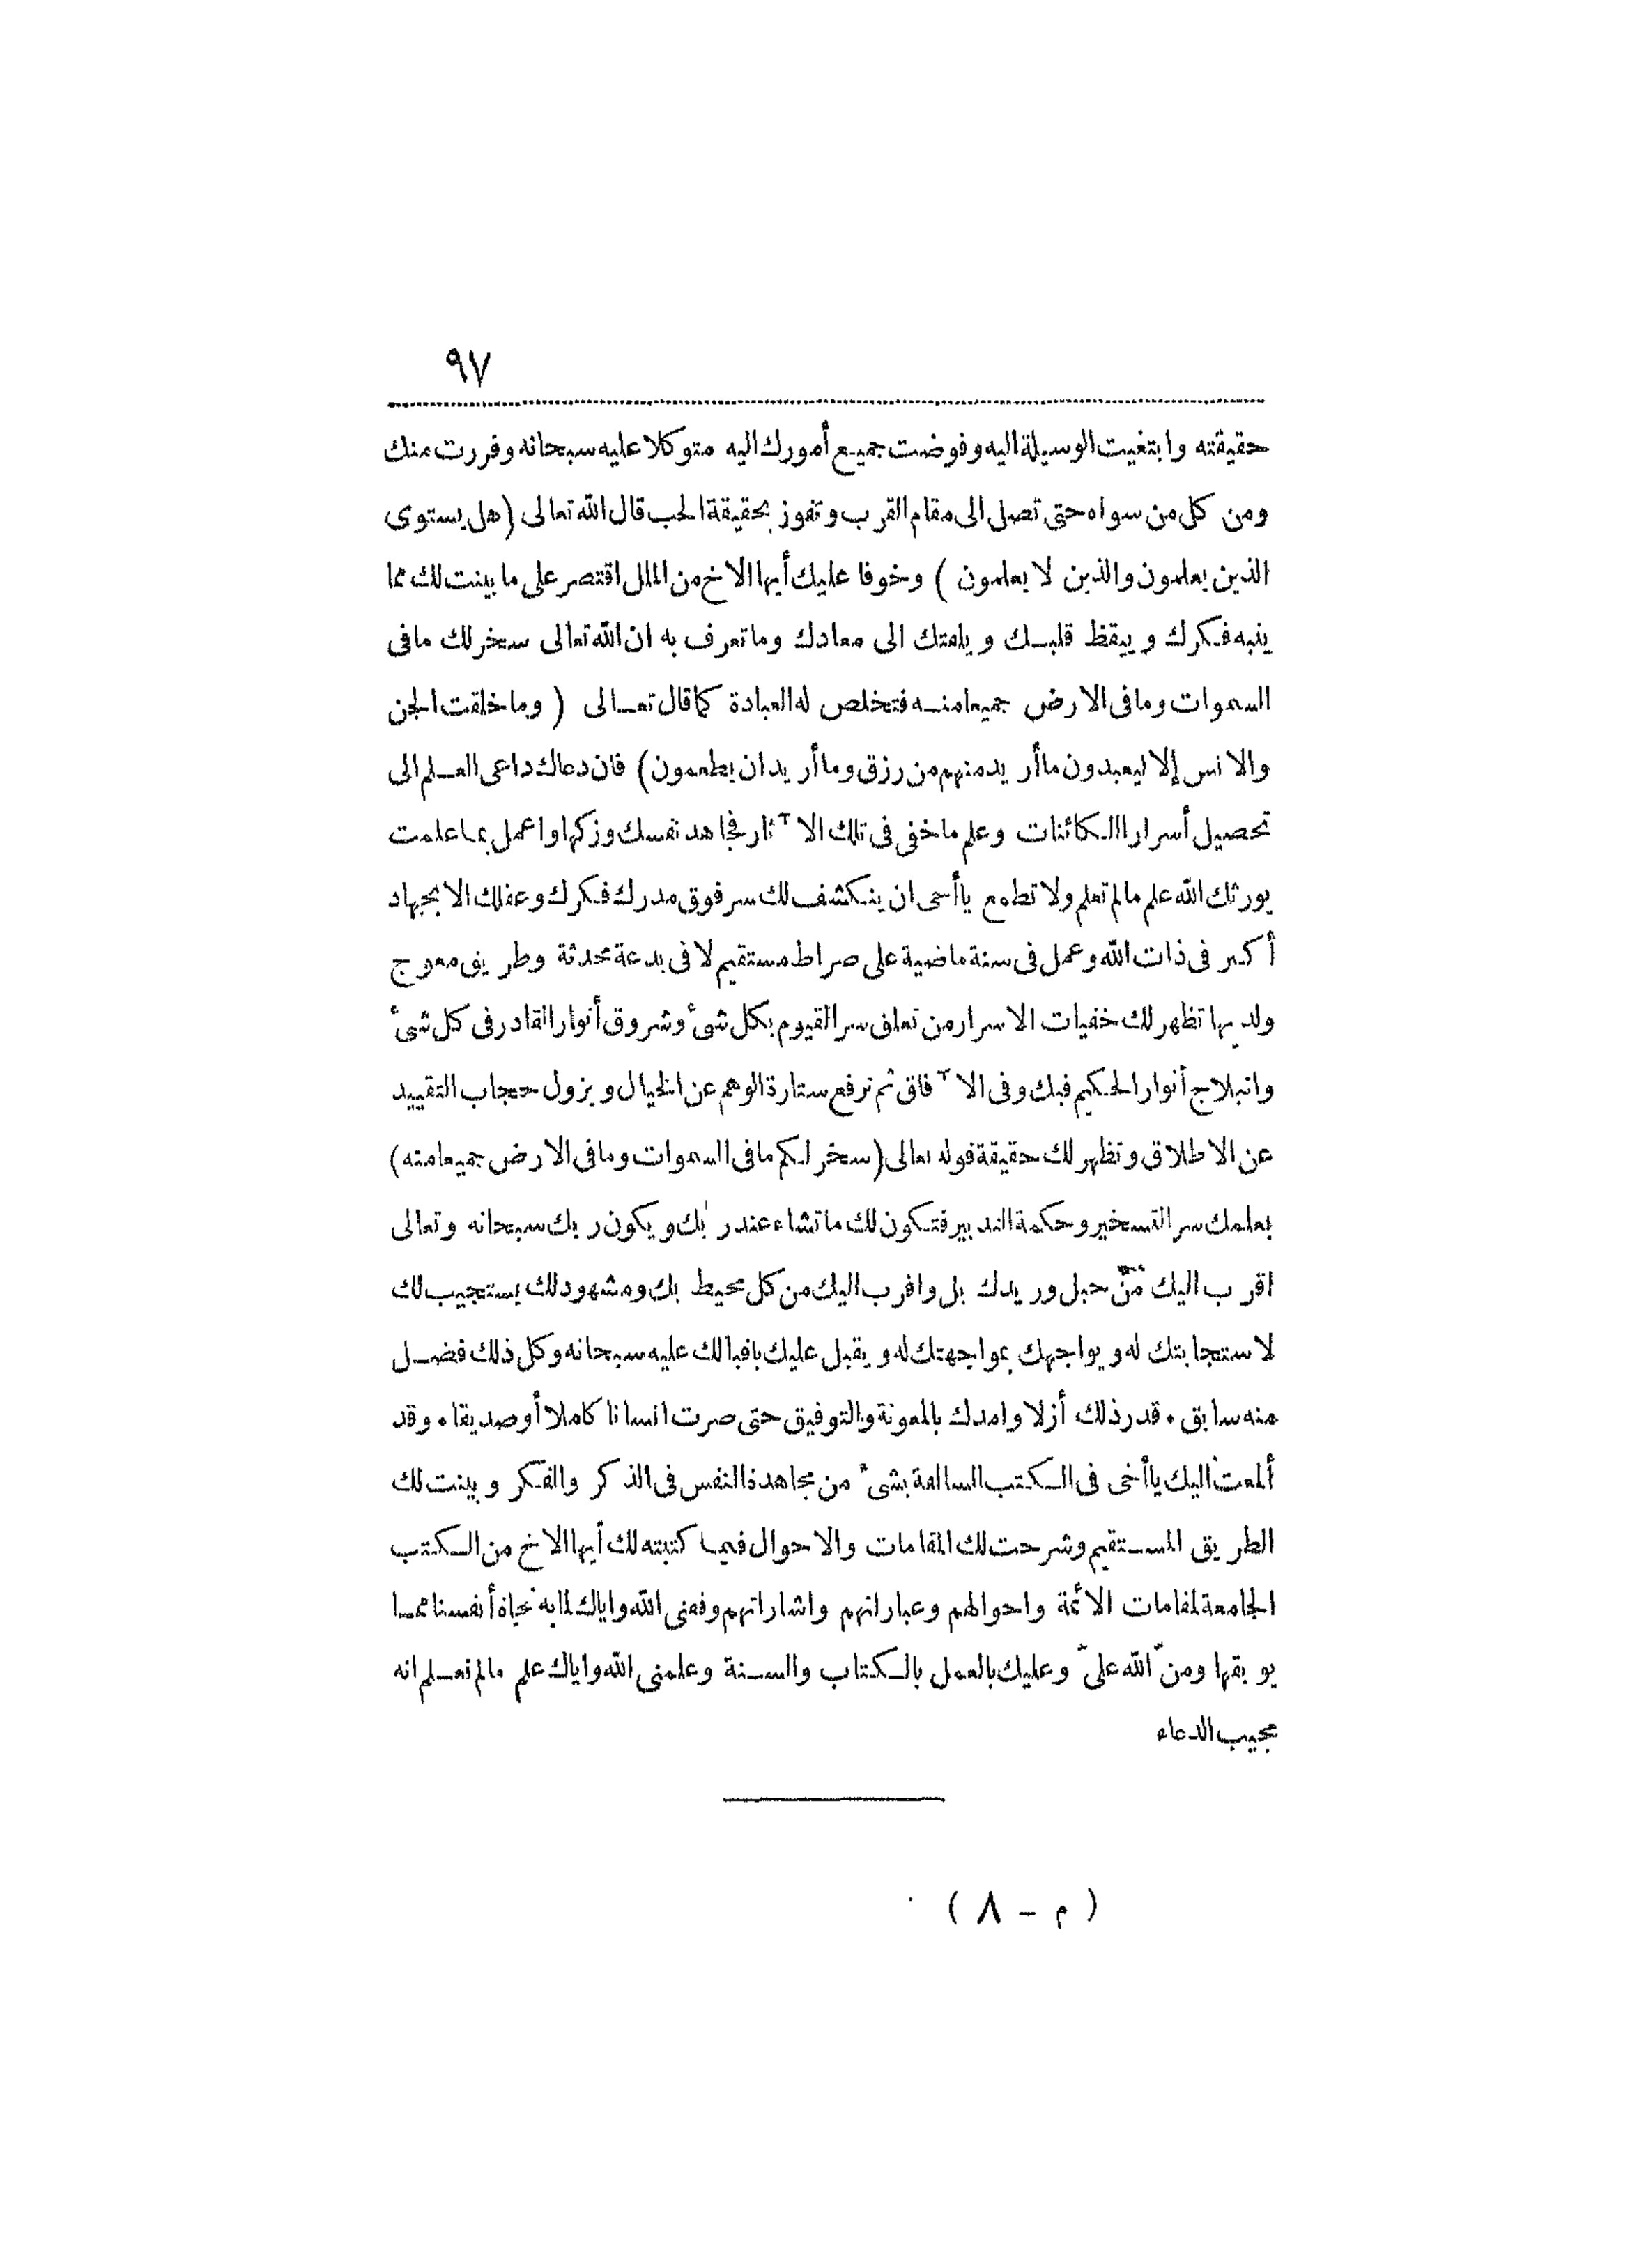 ٩٧
حقيقته وابتغيت الوسيلة اليه وفوضت جميع أمورك اليه متوكلا عليه سبحانه وفررت منك
ومن كل من سواه حتى تصل الى مقام القرب وتفوز بحقيقة الحب قال الله تعالى (هل يستوى
الذين يعلمون والذين لا يعلمون) وخوفا عليك أيها الاخ من الملل اقتصر على ما بينت لك مما
ينبه فكرك و ييقظ قلبك و يلفتك الى معادك وما تعرف به ان الله تعالى سخر لك ما فى
السموات وما فى الارض جميعا منه فتخلص له العبادة كما قال تعالى ( وما خلقت الجن
والانس إلا ليعبدون ما أريد منهم من رزق وما أريد ان يطعمون) فان دعاك داعى العلم الى
تحصيل أسرار االكائنات وعلم ما خفى فى تلك الآثار فجاهد نفسك وزكها واعمل بما علمت
يورثك الله علم ما لم تعلم ولا تطمع ياأخى ان ينكشف لك سر فوق مدرك فكرك وعقلك الا بجهاد
أكبر فى ذات الله وعمل فى سنة ماضية على صراط مستقيم لا فى بدعة محدثة وطريق معوج
ولديها تظهر لك خفيات الاسرار من تعلق سر القيوم بكل شىء وشروق أنوار القادر فى كل شىء
وانبلاج أنوار الحكيم فيك وفى الآفاق ثم ترفع ستارة الوهم عن الخيال ويزول حجاب التقييد
عن الاطلاق وتظهر لك حقيقة قوله تعالى (سخر لكم ما فى السموات وما فى الارض جميعا منه)
بعلمك سر التسخير وحكمة التدبير فتكون لك ما تشاء عند ربك ويكون ربك سبحانه وتعالى
اقرب اليك من حبل وريدك بل واقرب اليك من كل محيط بك ومشهود لك يستجيب لك
لاستجابتك له ويواجهك بمواجهتك له ويقبل عليك باقبالك عليه سبحانه وكل ذلك فضل
منه سابق . قدر ذلك أزلا وامدك بالمعونة والتوفيق حتى صرت انسانا كاملا أو صديقا . وقد
ألمعت اليك ياأخى فى الكتب السالفة بشىء من مجاهدة النفس فى الذكر والفكر وبينت لك
الطريق المستقيم وشرحت لك المقامات والاحوال فيما كتبته لك أيها الاخ من الكتب
الجامعة لمقامات الأئمة واحوالهم وعباراتهم واشاراتهم وفقنى الله واياك لما به نجاة أنفسنا مما
يوبقها ومنّ الله علىّ وعليك بالعمل بالكتاب والسنة وعلمنى الله واياك علم ما لم نعلم انه
مجيب الدعاء
( م - ٨ )